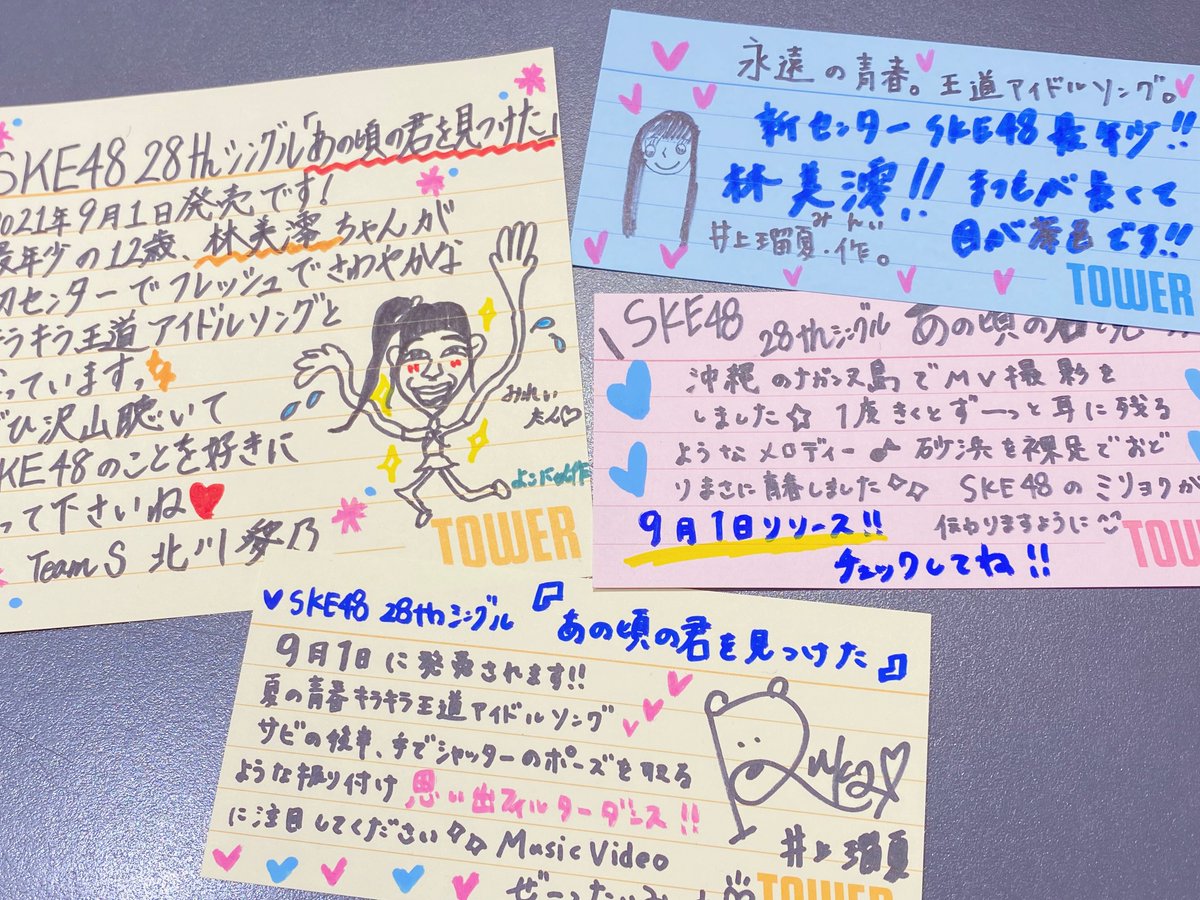 SKE48 28thシングル「あの頃の君を見つけた」
2021年9月1日発売です!
最年少の12歳、林美澪ちゃんが
初センターでフレッシュでさわやかな
キラキラ王道アイドルソングと
なっています。
ぜひ沢山聴いて
SKE48のことを好きに
なって下さいね
Team S 北川愛乃
みれい
たん♡
よこにゃん作
TOWER
永遠の青春。王道アイドルソング。
新センター SKE48最年少!!
林美澪!! まつもが長くて
目が茶色です!!
井上瑠夏.作。
TOWER
SKE48 28thシングル あの頃の君
沖縄のナガンヌ島でMV撮影を
しました☆ 1度きくとずーっと耳に残る
ようなメロディー♪ 砂浜を裸足でおど
りまさに青春しました SKE48のミリョクが
伝わりますように
9月1日リリース!!
チェックしてね!!
TOW
♥SKE48 28thシングル『あの頃の君を見つけた』
9月1日に発売されます!!
夏の青春キラキラ王道アイドルソング
サビの後半、手でシャッターのポーズを取る
ような振り付け 思い出フィルターダンス!!
に注目してください Music Video
ぜーったい
Ruka♡
井上瑠夏
TOWER